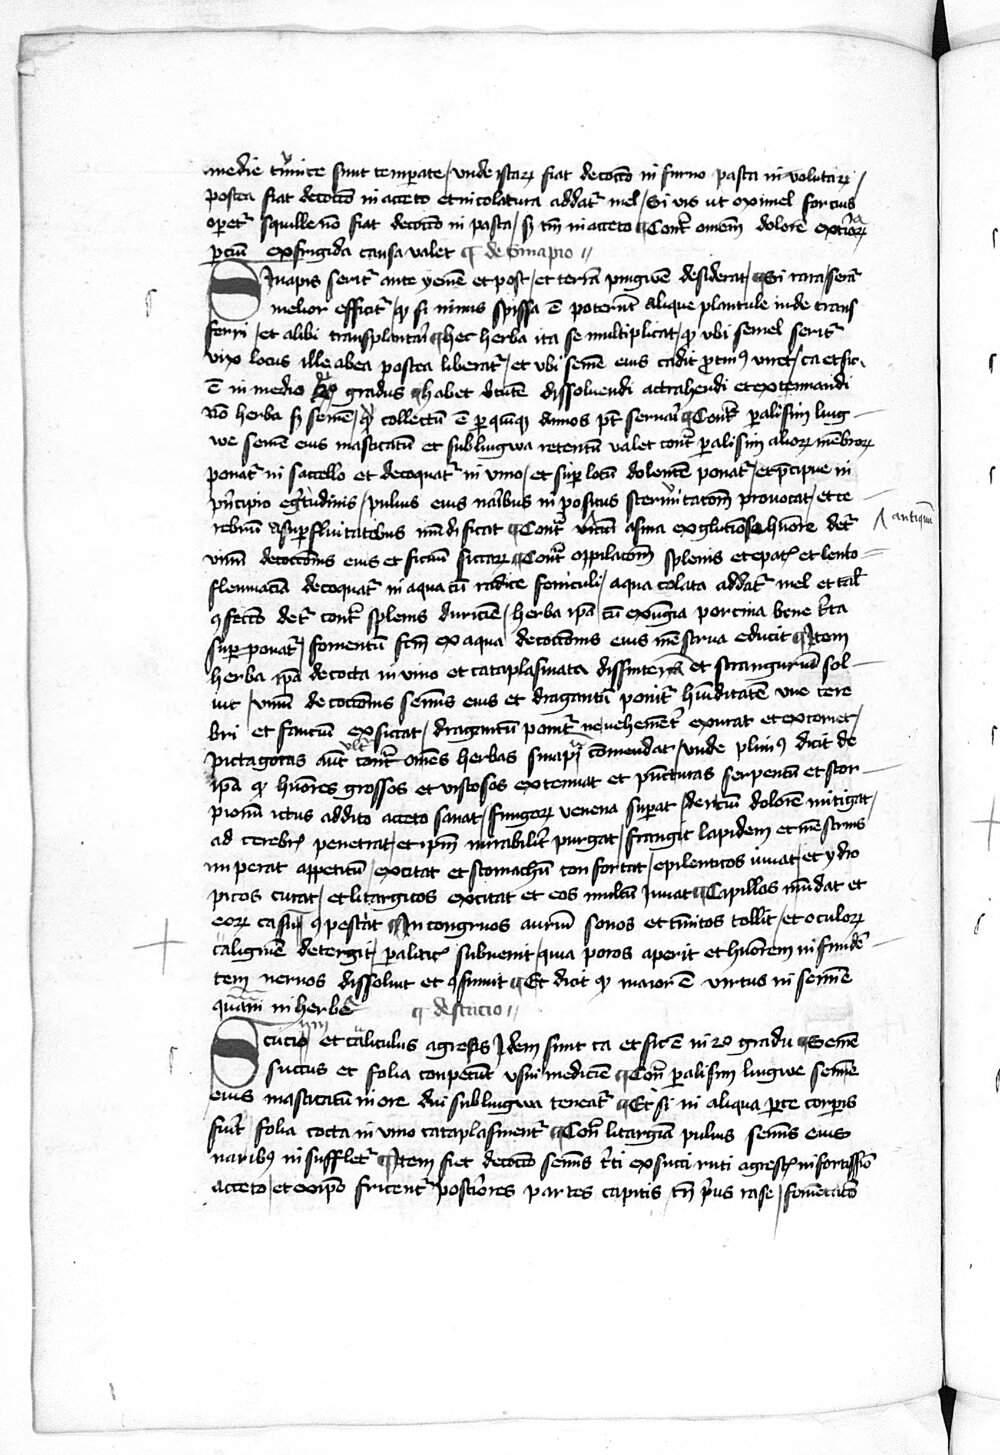 medie tunice sunt temperate / unde istaꝝ fiat decoctō in furno pasta in volutaꝝ /
postea fiat decoctō in acceto et in colatura addat᷑ mel / Si vis ut oximel forcius
opet᷑ squille nō fiat decoctō in pasta / sꝫ tm̄ in acceto ¶ Cont᷑ om̄em dolorē
ex frigida causa valet ¶ de Sinapio //
Sinapis serit᷑ ante yemē et post / et terrā pingwē desiderat / ¶ Si rara / serat᷑
melior efficit᷑ / qꝫ si nimis spissa ē poterūt alique plantule inde trans
ferri / et alibi transplantari ¶ hec herba ita se multiplicat / qꝫ ubi semel serit᷑
vix locus ille ab ea postea liberat᷑ / et ubi semē eius cadit ꝓtinꝰ viret / ca et sic.
ē in medio gradus ¶ habet v̄tutē dissolvendi attrahendi et extenuandi
Nō herba sꝫ semē / qꝫ collectū ē per quinqꝫ annos pt̄ servari ¶ Cont᷑ palisim ling
we semē eius masticatū et sub lingwa retentū valet cont᷑ palisim alioꝝ mēbroꝝ
ponat᷑ in saccello et decoquat᷑ in vino / et sup locū dolentē ponat᷑ / et p̄cipue in
p̄ncipio egritudinis / pulvis eius naribus in positus sternutatōm provocat / et ce
rebrū a supfluitatibus mūdificat ¶ Cont᷑ asma ex glutinoso hūore det᷑
antiquū
vinū decoctōnis eius et ficuū siccaꝝ ¶ Cont᷑ opilatōm splenis et epat᷑ et lento
flemmaciā decoquat᷑ in aqua cū radice feniculi / aqua colata addat᷑ mel et tal᷑
ꝯfectō det᷑ cont᷑ splenis duriciē / herba ip̄a cū exungia porcina bene t᷑ta
sup ponat᷑ / fomentū fcm̄ ex aqua decoctōnis eius mēstrua educit ¶ Item
herba ip̄a decocta in vino et cataplasmata dissinteriā et strangwriā sol
vit / vinū decoctōnis semīs eius et dragantū ponit᷑ hūiditatē uve cere
bri et fauciū exsiccat / dragantū ponit᷑ ne vehement᷑ exurat et extoriet /
pictagoras aut᷑ cont᷑ om̄es herbas sinapi cōmendat / unde pliniꝰ dicit de
ip̄a qꝫ hūores grossos et viscosos extenuat et pūcturas serpentū et scor
pionū ictus addito acceto sanat / fungoꝝ venena superat / dentiū dolorē mitigat /
ad cerebrū penetrat / et ip̄m mirabilit᷑ purgat / frangit lapidem et mēstruis
imperat appetitū / excitat et stomachū confortat / epilenticos iuvat / et ydro
picos curat / et litargicos excitat et eos multū iuvat ¶ Capillos mūdat et
eoꝝ casui ꝯpescit ¶ Incongruos auriū sonos et tinitos tollit / et oculoꝝ
caliginē detergit / palitic᷑ subvenit / quia poros aperit et hūorem infundē
tem nervos dissolvit et ꝯsumit ¶ Et dicit qꝫ maior ē virtus in semīe
quam in herbē ¶ de scucio //
Scucio et cauliculus agrestis idem sunt ca et sic ē in 2o gradu ¶ Semē
succus et folia conpetūt usui medicīe ¶ Con᷑ palisim lingwe semē
eius masticatū in ore diu sub lingwa teneat᷑ ¶ Et si in aliqua p̄te corp̄is
fuit folia cocta in vino cataplasment᷑ ¶ Con᷑ litargiā pulvis semīs eius
naribꝰ in sufflet᷑ ¶ Item fiet decoctō semīs t᷑ti ex succi ruti agrest᷑ in fortissō
acceto / et ex ip̄o fricent᷑ posteriores partes capitis tn̄ p̄us rase / fomentatō